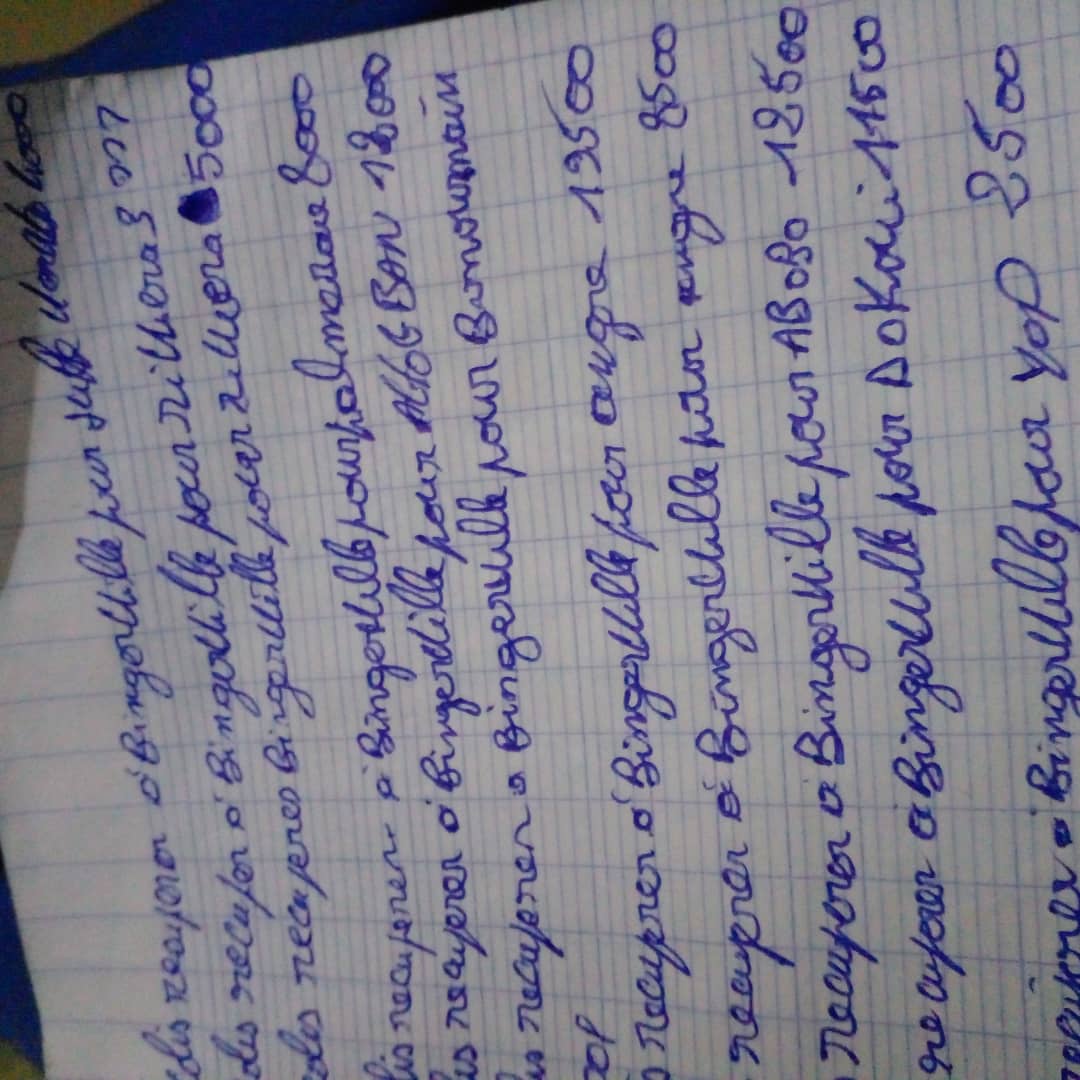 olis recuperer à BingerVille pour 4000
olis recuper à BingerVille pour riViera 3 ???
olis recuperes BingerVille pour riViera 5000
lis recuperer à BingerVille pour palmeraie 8000
is recuperer à BingerVille pour AGOGBAN 12000
is recuperer a BingerVille pour
recuperer à BingerVille pour angre 19500
recuperer à BingerVille pour angre 8500
recuperer à BingerVille pour ABOBO 12500
recuperer à BingerVille pour DOKOUi 11500
recuperer à BingerVille pour YOP 2500